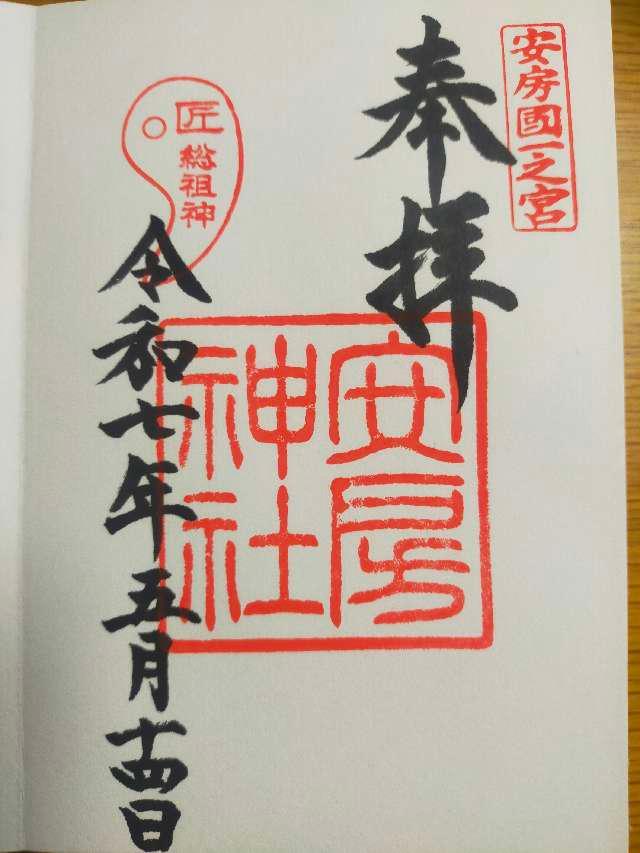 安房國一之宮
奉拝
安房
神社
匠
総祖神
令和七年五月十四日